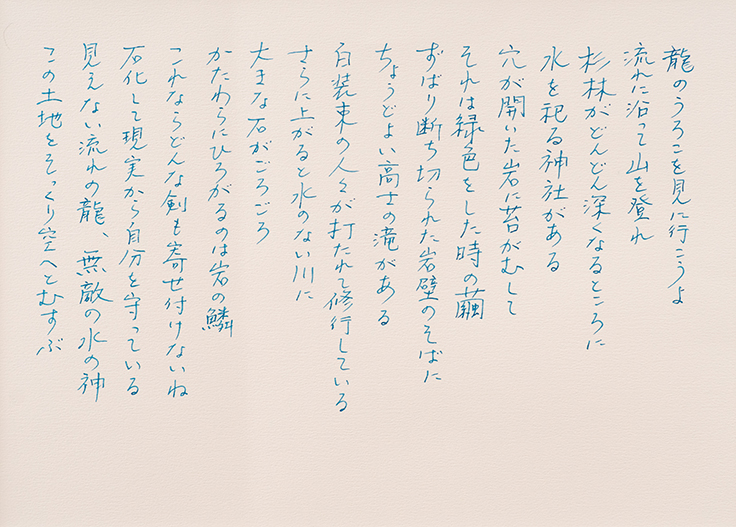 龍のうろこを見に行こうよ
流れに沿って山を登れ
杉林がどんどん深くなるところに
水を祀る神社がある
穴が開いた岩に苔がむして
それは緑色をした時の繭
ずばり断ち切られた岩壁のそばに
ちょうどよい高さの滝がある
白装束の人々が打たれて修行している
さらに上がると水のない川に
大きな石がごろごろ
かたわらにひろがるのは岩の鱗
これならどんな剣も寄せ付けないね
石化して現実から自分を守っている
見えない流れの龍、無敵の水の神
この土地をそっくり空へとむすぶ